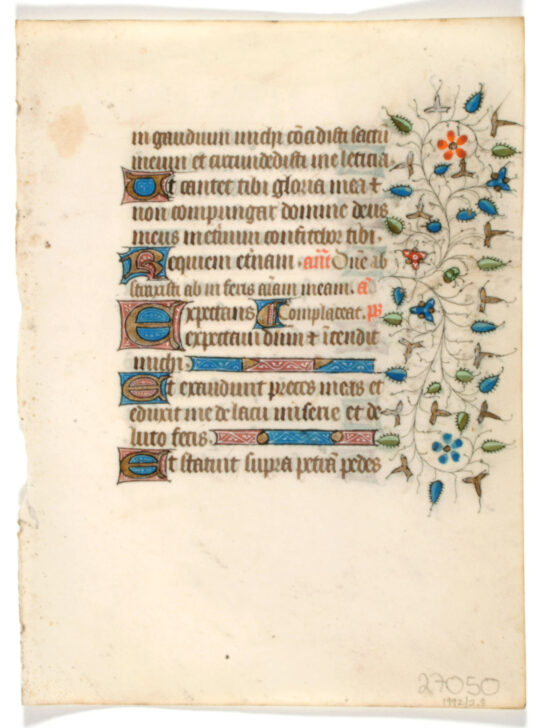 in gaudium michi cōcidisti saccū
meum et circumdedisti me leticia.
Ut cantet tibi gloria mea ⁊
non compungar domine deus
meus in et̄num confitebor tibi.
Requiem et̄nam. an̄t Dn̄e ab
straxisti ab inferis aīam meam. a᷑
Expectans Complaceat. ps̄
expectaui dūm ⁊ ītendit
michi.
Et exaudiuit preces meas et
eduxit me de lacu miserie et de
luto fecis.
Et statuit supra petrā pedes
27050
1992/2.9